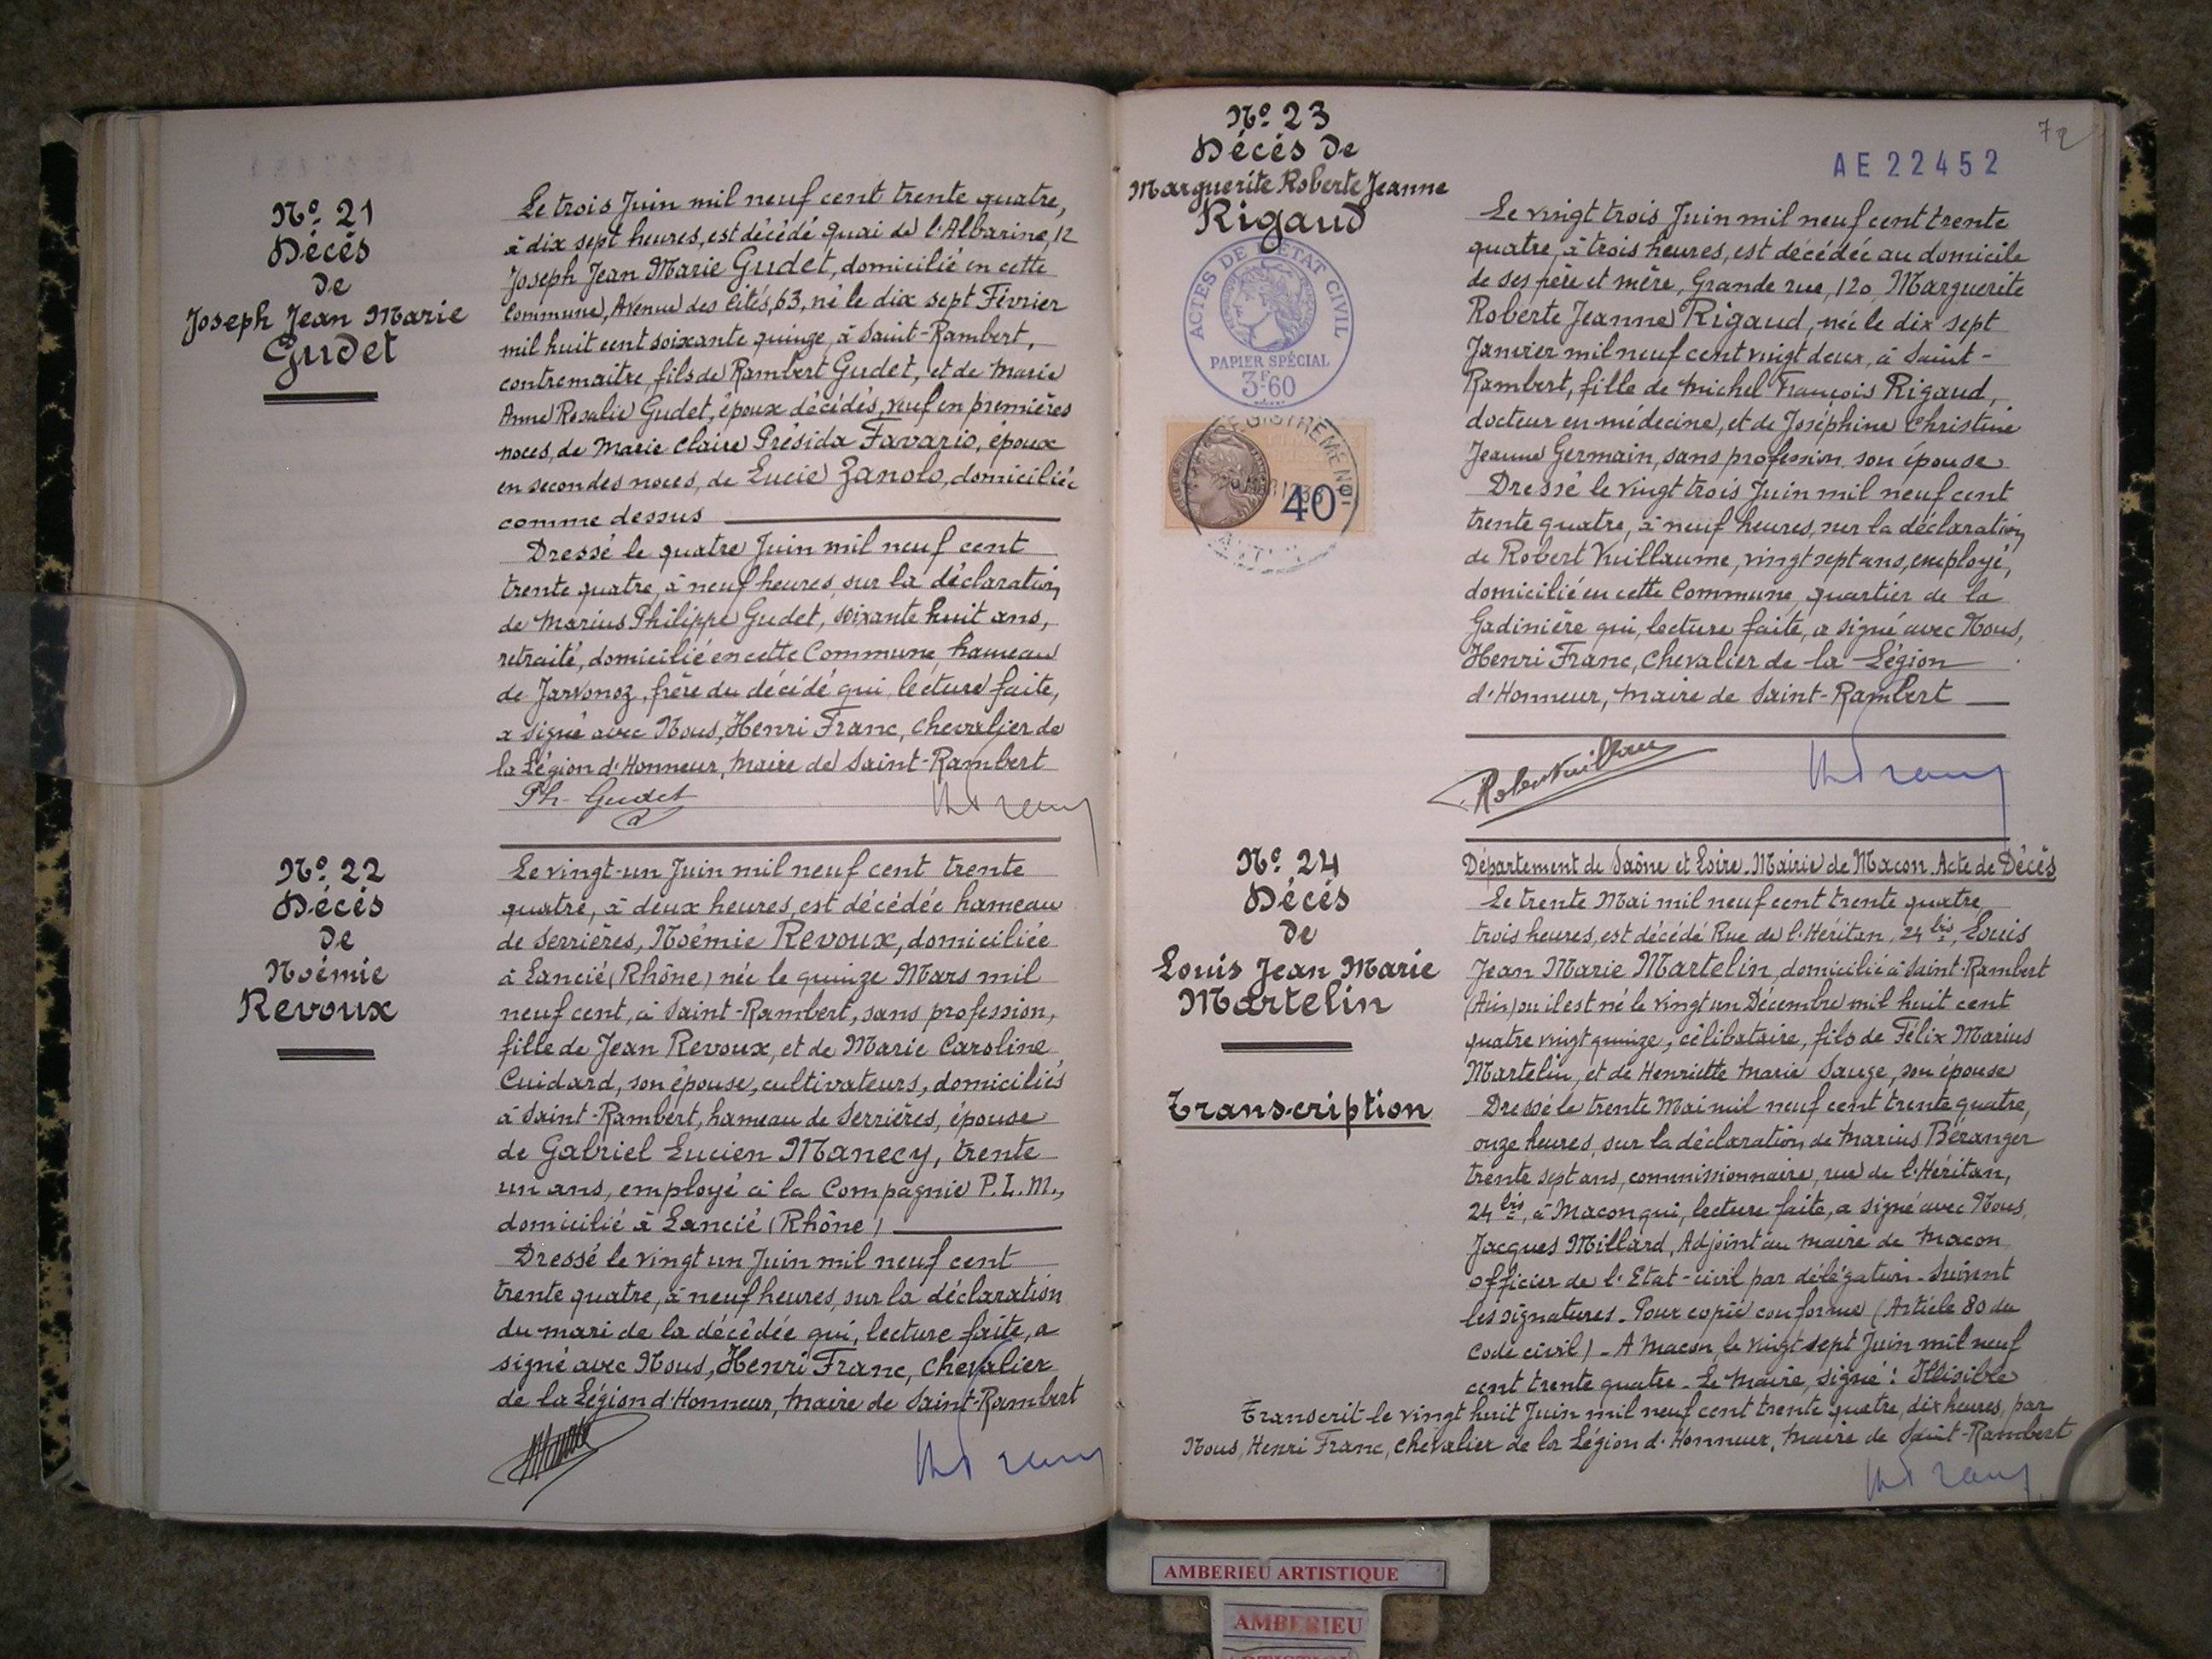 Nº 21
Décés
de
Joseph Jean Marie
Gudet
Le trois Juin mil neuf cent trente quatre,
à dix sept heures, est décédé quai de l'Albarine, 12
Joseph Jean Marie Gudet, domicilié en cette
Commune, Avenue des Cités, 63, né le dix sept Février
mil huit cent soixante quinze, à Saint-Rambert,
contremaitre, fils de Rambert Gudet, et de Marie
Anne Rosalie Gudet, époux décédés, veuf en premières
noces, de Marie Claire Présida Favario, époux
en secondes noces, de Lucie Zanolo, domiciliée
comme dessus
Dressé le quatre Juin mil neuf cent
trente quatre, à neuf heures, sur la déclaration
de Marius Philippe Gudet, soixante huit ans,
retraité, domicilié en cette Commune, hameau
de Javornoz, frère du décédé qui, lecture faite,
a signé avec Nous, Henri Franc, Chevalier de
la Légion d'Honneur, Maire de Saint-Rambert
Ph. Gudet
Nº 22
Décés
de
Noémie
Revoux
Le vingt-un Juin mil neuf cent trente
quatre, à deux heures, est décédée hameau
de Serrières, Noémie Revoux, domiciliée
à Lancié (Rhône) née le quinze Mars mil
neuf cent, à Saint-Rambert, sans profession,
fille de Jean Revoux, et de Marie Caroline
Cuidard, son épouse, cultivateurs, domiciliés
à Saint-Rambert, hameau de Serrières, épouse
de Gabriel Lucien Manecy, trente
un ans, employé à la Compagnie P.L.M.,
domicilié à Lancié (Rhône)
Dressé le vingt un Juin mil neuf cent
trente quatre, à neuf heures, sur la déclaration
du mari de la décédée qui, lecture faite, a
signé avec Nous, Henri Franc, Chevalier
de la Légion d'Honneur, Maire de Saint-Rambert
72
AE 22452
Nº 23
Décés de
Marguerite Roberte Jeanne
Rigaud
ACTES DE L'ETAT CIVIL
PAPIER SPÉCIAL
3F60
40
Le vingt trois Juin mil neuf cent trente
quatre, à trois heures, est décédée au domicile
de ses père et mère, Grande rue, 120, Marguerite
Roberte Jeanne Rigaud, née le dix sept
Janvier mil neuf cent vingt deux, à Saint-
Rambert, fille de Michel François Rigaud,
docteur en médecine, et de Joséphine Christine
Jeanne Germain, sans profession, son épouse
Dressé le vingt trois Juin mil neuf cent
trente quatre, à neuf heures, sur la déclaration
de Robert Vuillaume, vingt sept ans, employé,
domicilié en cette Commune, quartier de la
Gadinière qui, lecture faite, a signé avec Nous,
Henri Franc, Chevalier de la Légion
d'Honneur, Maire de Saint-Rambert
Nº 24
Décés
de
Louis Jean Marie
Martelin
Transcription
Département de Saône et Loire. Mairie de Macon. Acte de Décés
Le trente Mai mil neuf cent trente quatre
trois heures, est décédé Rue de l'Héritan, 24 bis, Louis
Jean Marie Martelin, domicilié à Saint-Rambert
(Ain) ou il est né le vingt un Décembre mil huit cent
quatre vingt quinze, célibataire, fils de Félix Marius
Martelin, et de Henriette Marie Sauge, son épouse
Dressé le trente Mai mil neuf cent trente quatre,
onze heures, sur la déclaration de Marius Béranger
trente sept ans, commissionnaire, rue de l'Héritan,
24 bis, à Macon qui, lecture faite, a signé avec Nous,
Jacques Millard, Adjoint au Maire de Macon
Officier de l'Etat-civil par délégation. Suivent
les signatures. Pour copie conforme (Article 80 du
Code civil) - A Macon, le vingt sept Juin mil neuf
cent trente quatre - Le Maire, signé : Illisible
Transcrit le vingt huit Juin mil neuf cent trente quatre, dix heures, par
Nous, Henri Franc, Chevalier de la Légion d'Honneur, Maire de Saint-Rambert
AMBERIEU ARTISTIQUE
AMBERIEU
ARTISTIQUE